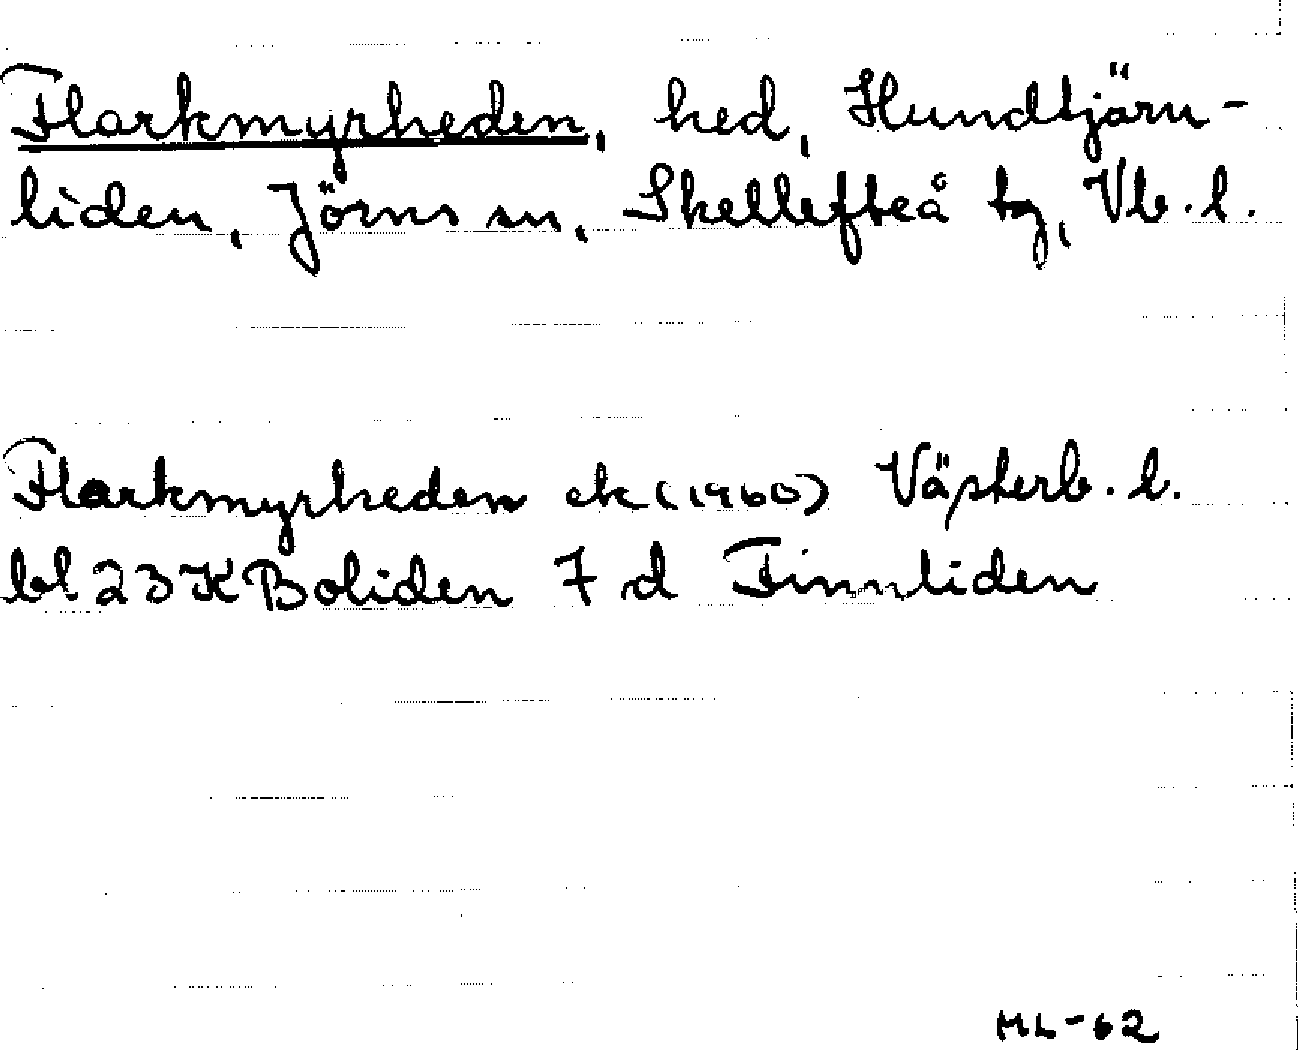 Flarkmyrheden, hed, Hundtjärn-
liden, Jörns sn, Skellefteå tg, Vb. l.
Flarkmyrheden ek (1960) Västerb. l.
bl 23 K Boliden 7 d Finnliden
ML-62